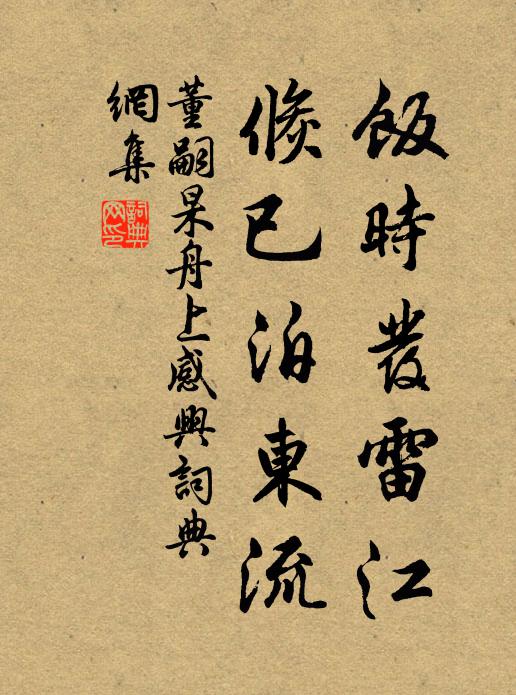 飯時發雷江
倏已泊東流
董嗣杲舟上感興詞典
網集
詞典
网印